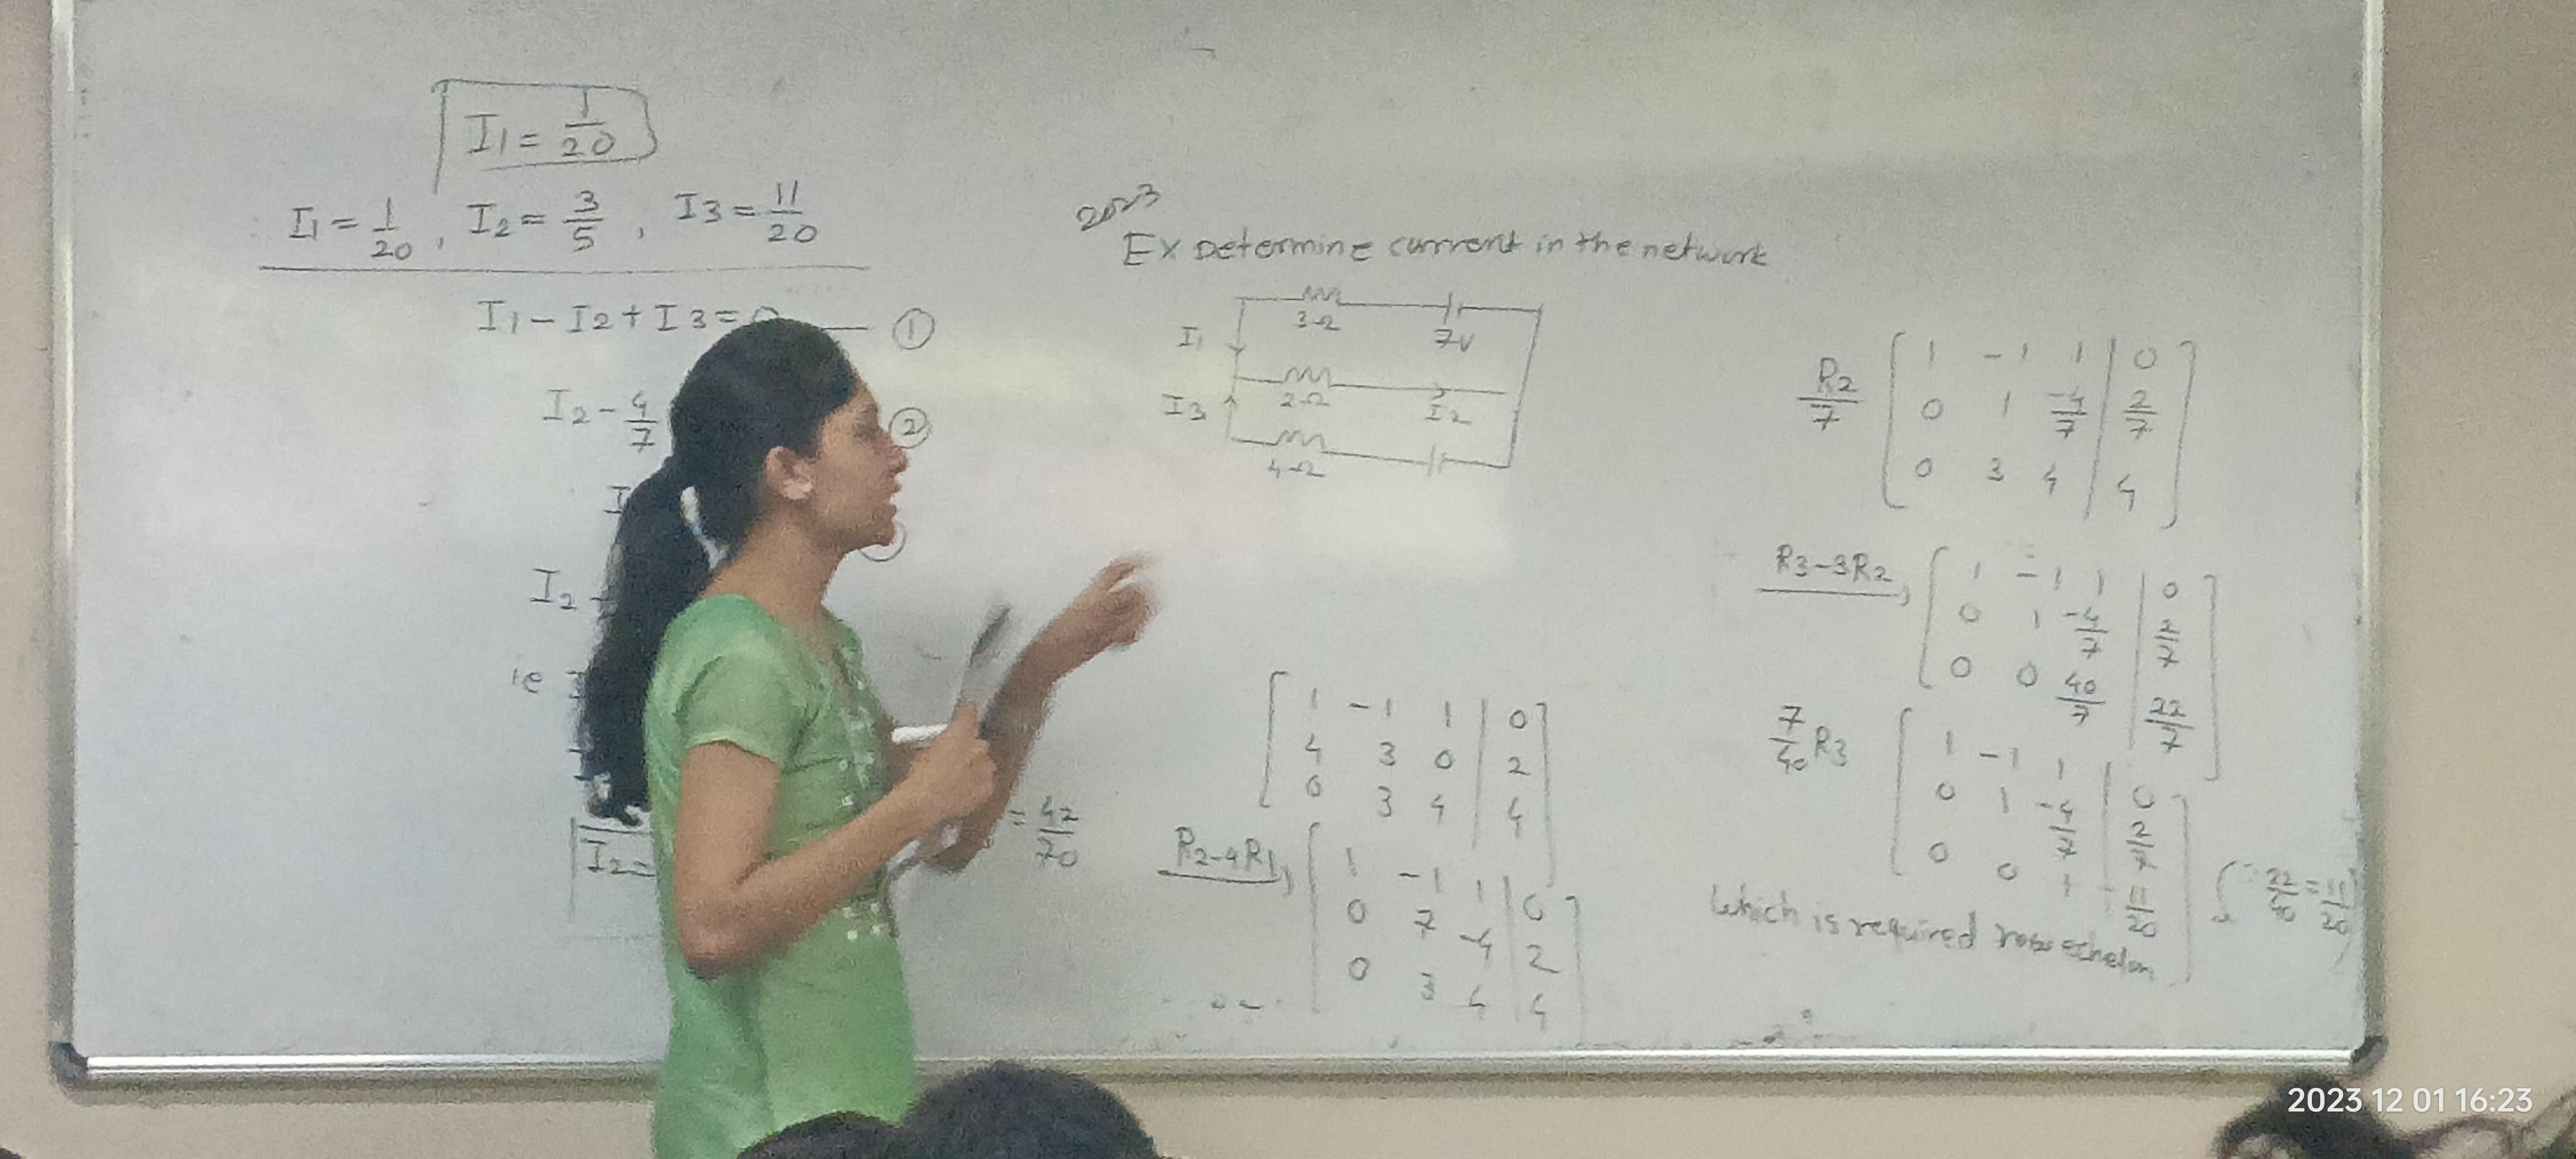 I1 = 1/20
I1 = 1/20 , I2 = 3/5 , I3 = 11/20
I1 - I2 + I3 = 0 ①
I2 - 4/7 ②
I2 -
ie
I2 =
= 42/70
2023
Ex Determine current in the network
3Ω 7V
I1
2Ω I2
I3
4Ω
1 -1 1 | 0
4 3 0 | 2
0 3 4 | 4
R2-4R1,
1 -1 1 | 0
0 7 -4 | 2
0 3 4 | 4
R2/7
1 -1 1 | 0
0 1 -4/7 | 2/7
0 3 4 | 4
R3-3R2,
1 -1 1 | 0
0 1 -4/7 | 2/7
0 0 40/7 | 22/7
7/40 R3
1 -1 1 | 0
0 1 -4/7 | 2/7
0 0 1 | 11/20
22/40 = 11/20
Which is required row echelon
2023 12 01 16:23